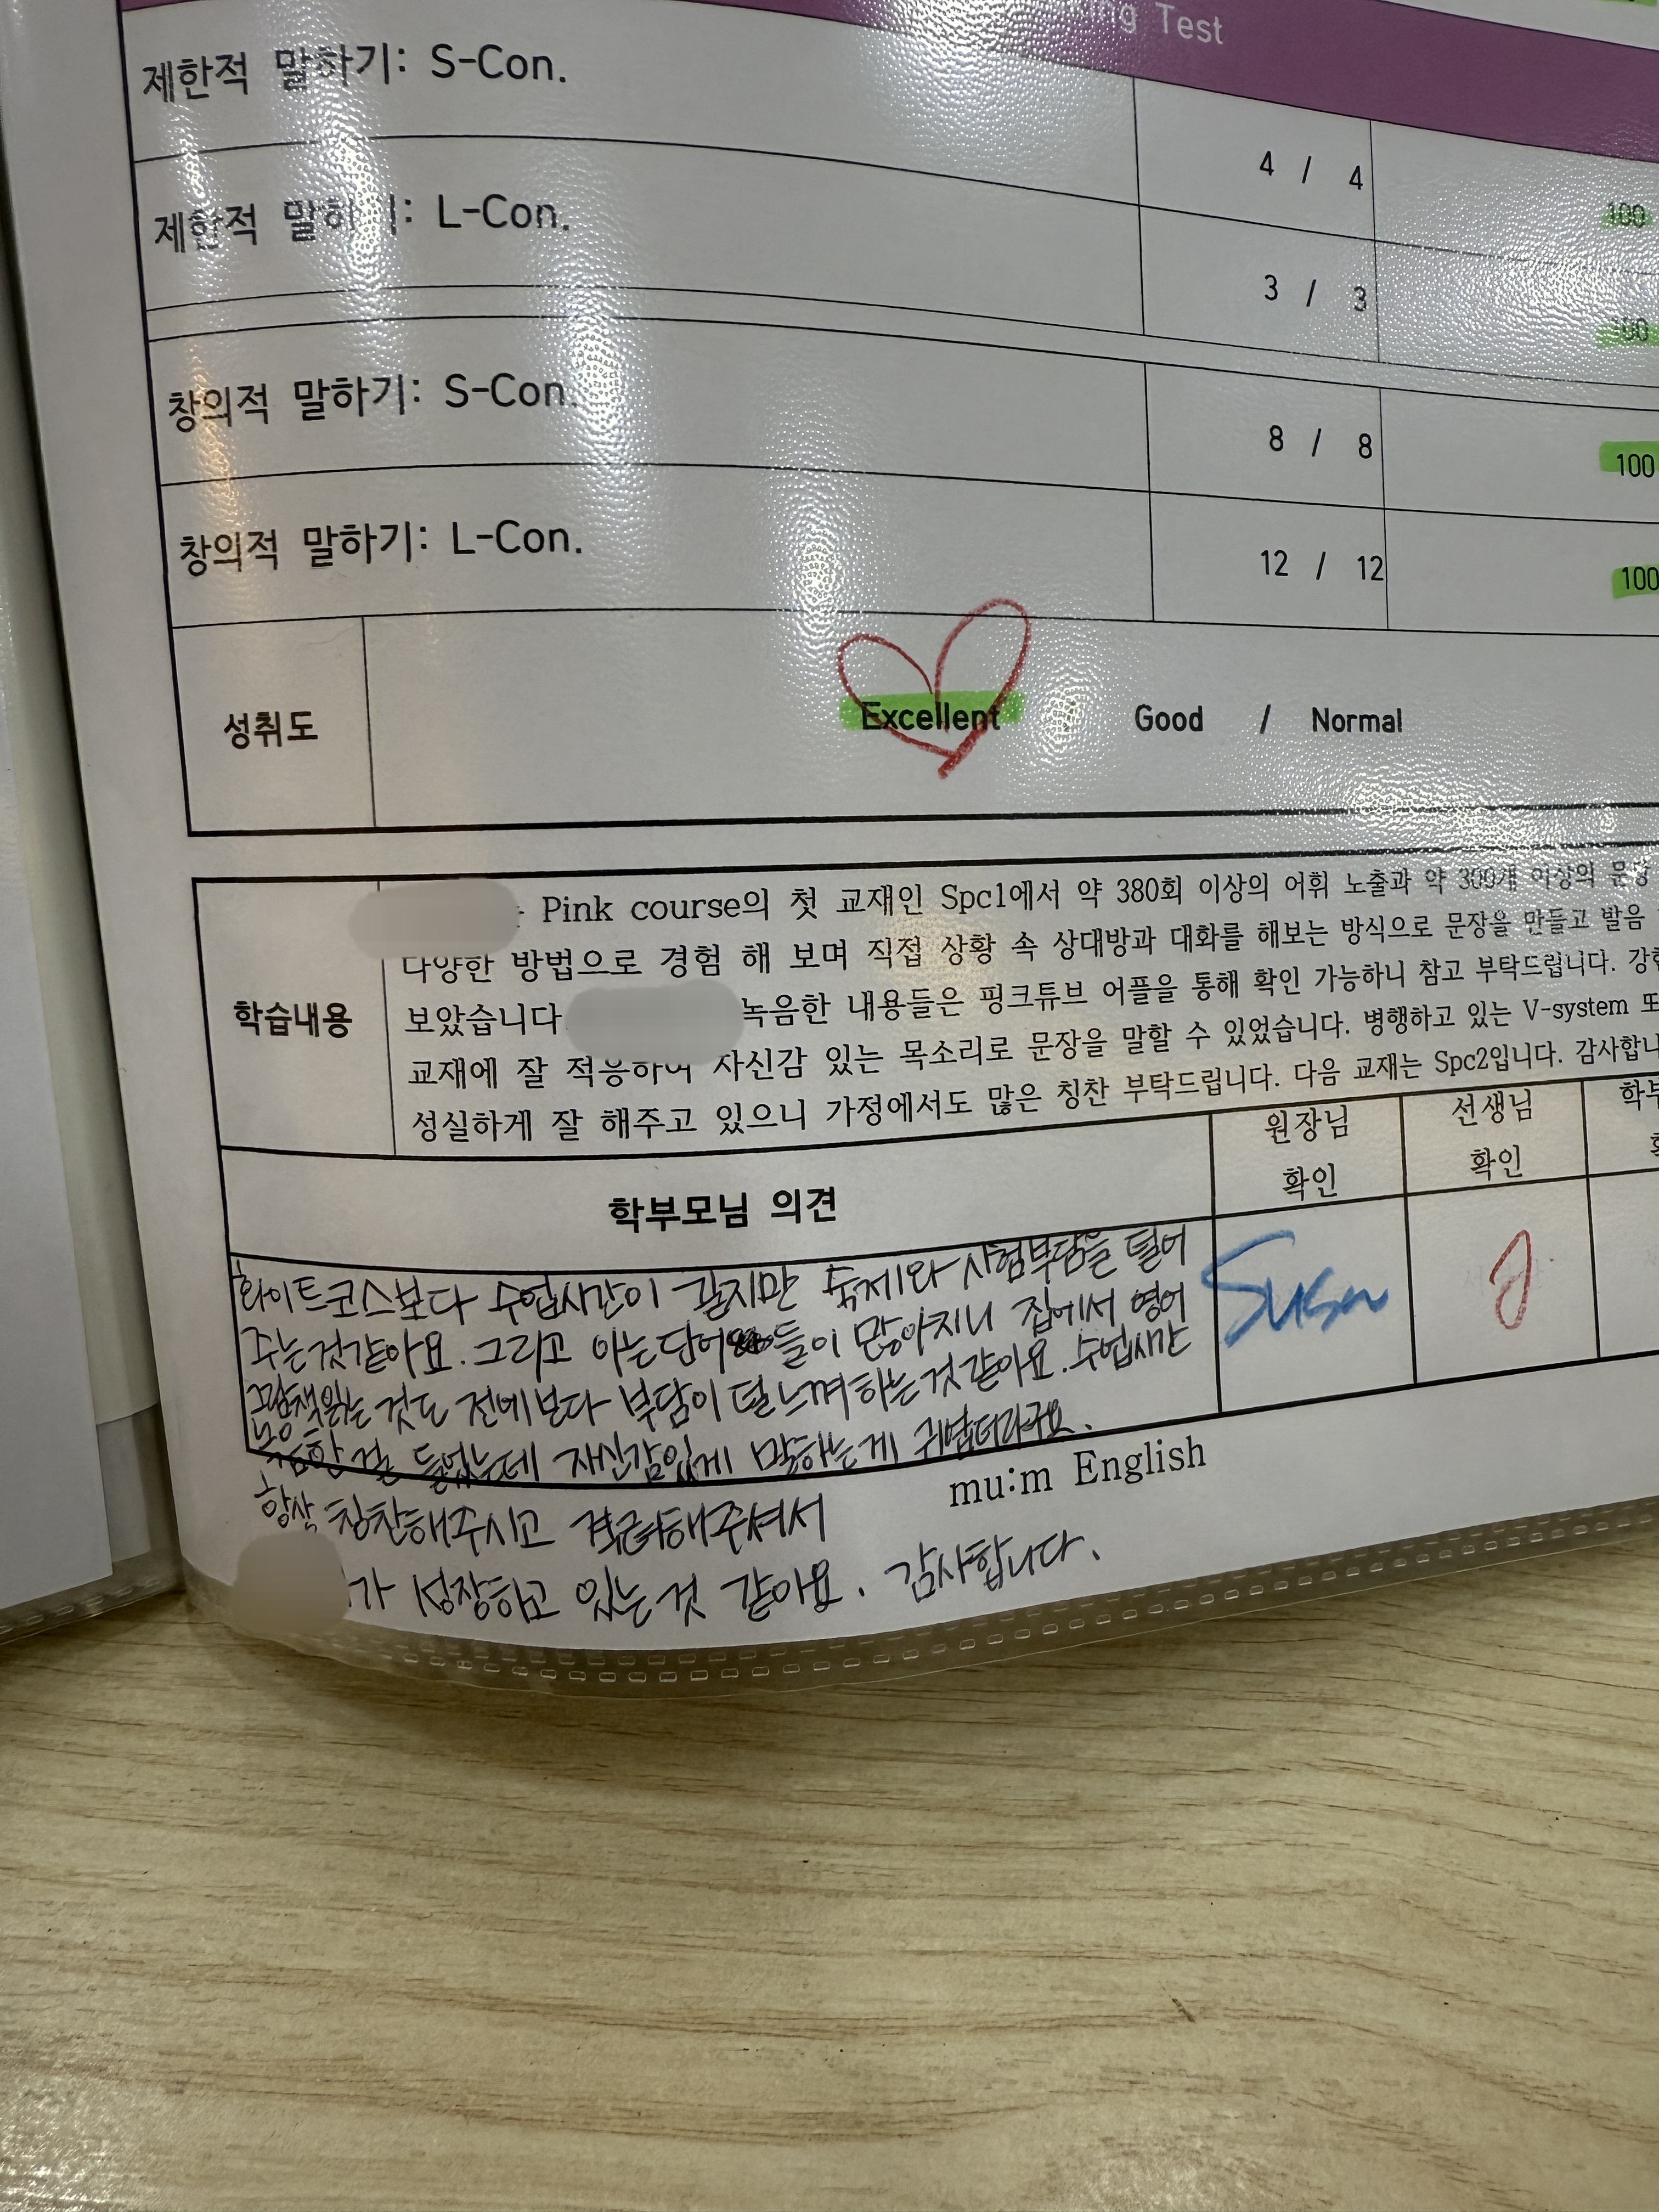 ing Test
제한적 말하기: S-Con. 4 / 4 100
제한적 말하기: L-Con. 3 / 3 100
창의적 말하기: S-Con. 8 / 8 100
창의적 말하기: L-Con. 12 / 12 100
성취도 Excellent / Good / Normal
학습내용
Pink course의 첫 교재인 Spc1에서 약 380회 이상의 어휘 노출과 약 300개 이상의 문장
다양한 방법으로 경험 해 보며 직접 상황 속 상대방과 대화를 해보는 방식으로 문장을 만들고 발음
보았습니다 녹음한 내용들은 핑크튜브 어플을 통해 확인 가능하니 참고 부탁드립니다.
교재에 잘 적응하여 자신감 있는 목소리로 문장을 말할 수 있었습니다. 병행하고 있는 V-system 또
성실하게 잘 해주고 있으니 가정에서도 많은 칭찬 부탁드립니다. 다음 교재는 Spc2입니다. 감사합니
학부모님 의견
원장님 확인
선생님 확인
학부
화이트코스보다 수업시간이 길지만 숙제와 시험부담을 덜어
주는것같아요. 그리고 아는단어들이 많아지니 집에서 영어
그림책읽는 것도 전에보다 부담이 덜느껴하는것같아요. 수업시간
녹음한 걸 들었는데 자신감있게 말하는게 귀엽더라구요.
항상 칭찬해주시고 격려해주셔서
가 성장하고 있는것 같아요. 감사합니다.
Susan
mu:m English